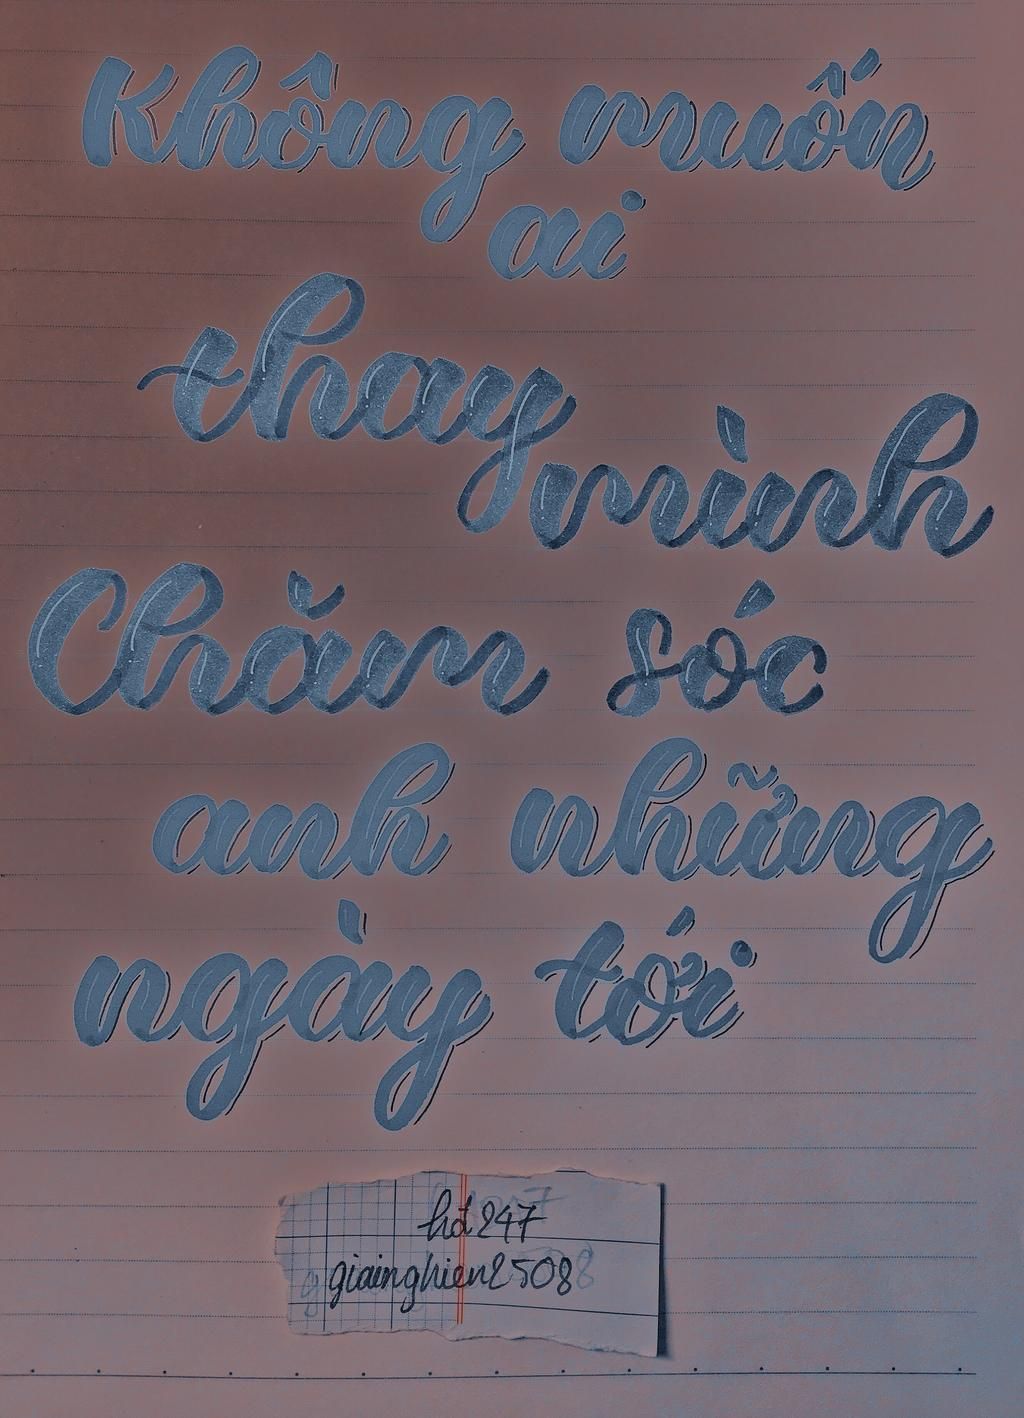 Không muốn
ai
thay
mình
Chăm sóc
anh những
ngày tới
hd247
giainghien2508